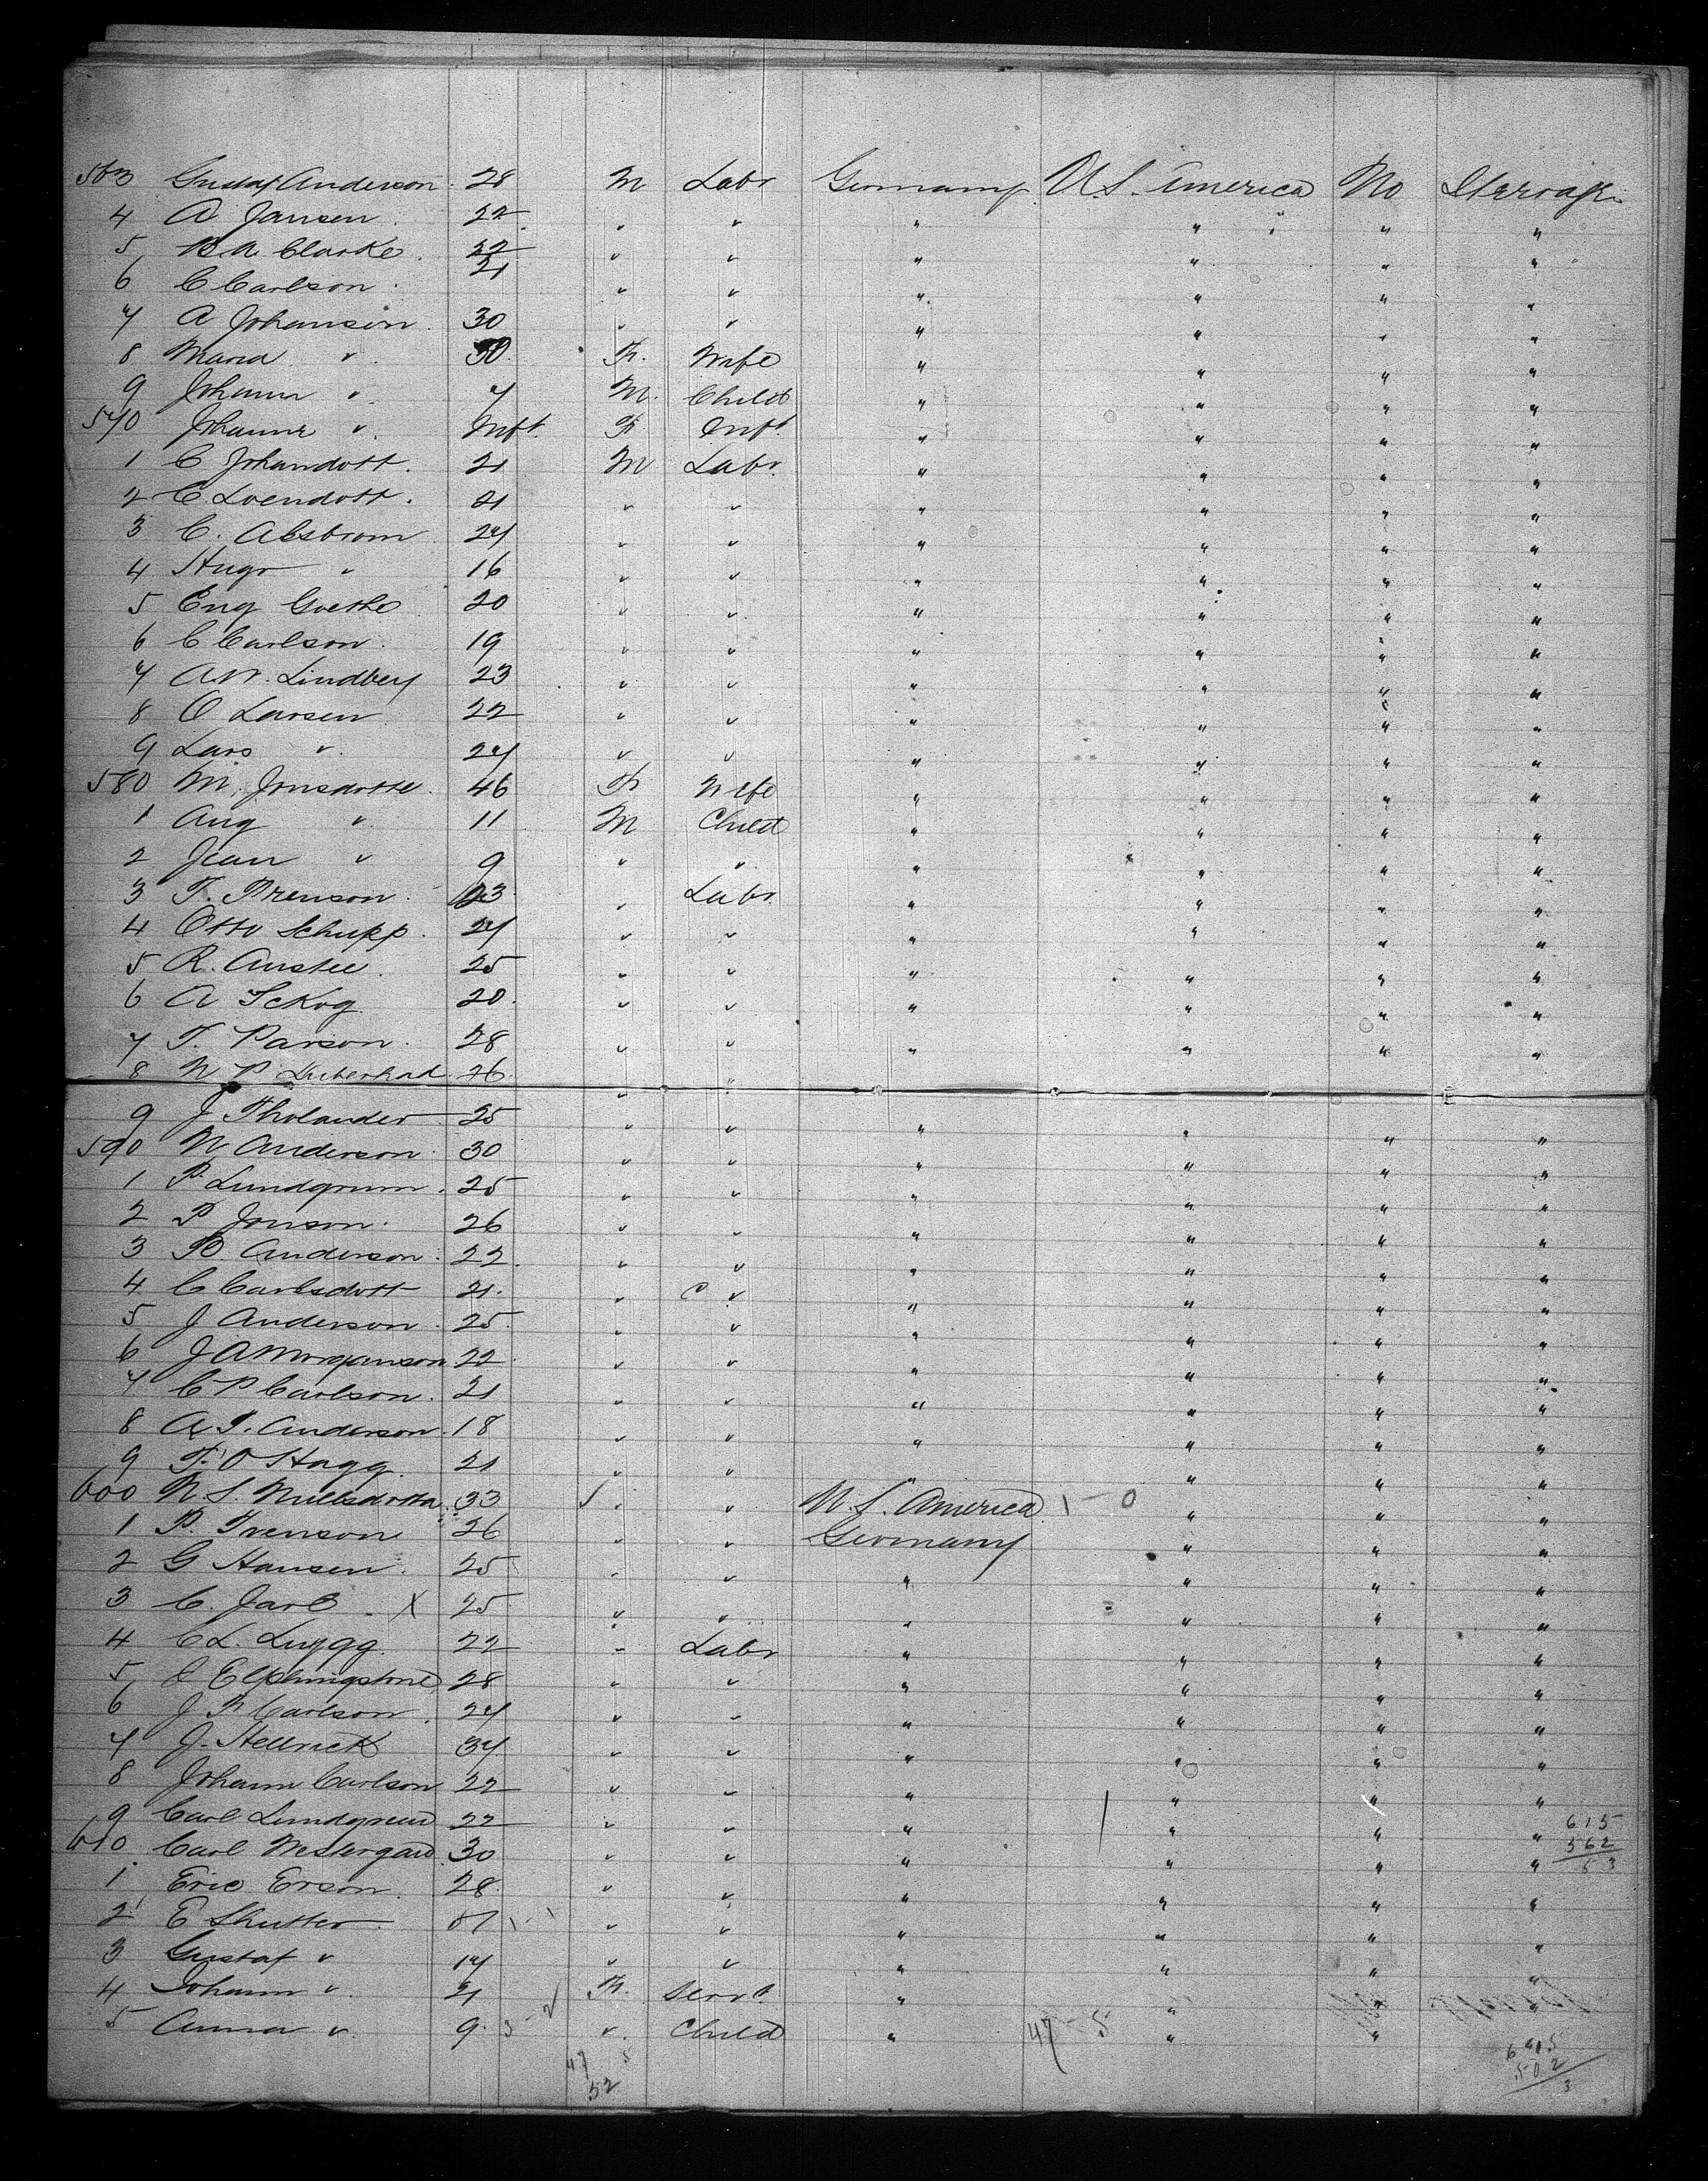 563 Gustaf Anderson 28 M Labr Germany U.S. America No Steerage
4 A Jansen 22 " " " " " "
5 B.A. Clarke 22 " " " " " "
6 C Carlson 21 " " " " " "
7 A Johansen 30 " " " " " "
8 Maria " 30 F. Wife " " " "
9 Johann " 7 M. Child " " " "
570 Johanne " Inft. F Inft. " " " "
1 C Johandott. 21 M Labr. " " " "
2 C. Svendott. 21 " " " " " "
3 C. Alstrom 24 " " " " " "
4 Hugo " 16 " " " " " "
5 Eug Goethe 20 " " " " " "
6 C Carlson 19 " " " " " "
7 A.W. Lindberg 23 " " " " " "
8 O Larsen 22 " " " " " "
9 Lars " 24 " " " " " "
580 M. Jonsdotte 46 F Wife " " " "
1 Aug " 11 M Child " " " "
2 Jean " 9 " " " " " "
3 F. Brenson 23 " Labr " " " "
4 Otto Schupp 24 " " " " " "
5 R. Anstee 25 " " " " " "
6 A Sckog 20 " " " " " "
7 F. Parson 28 " " " " " "
8 N P 26 " "
9 J Tholander 25 " " " " " "
590 N Anderson 30 " " " " " "
1 P. Lundgrum 25 " " " " " "
2 P Jonson 26 " " " " " "
3 B Anderson 22 " " " " " "
4 C Carlsdott 21 " " " " " "
5 J Anderson 25 " " " " " "
6 J A Morganson 22 " " " " " "
7 C P Carlson 21 " " " " " "
8 A. P. Anderson 18 " " " " " "
9 F. O Hagg 21 " " " " " "
600 N S. 33 " " U.S. America 1-0 " " "
1 P. Ivenson 26 " " Germany " " "
2 G Hansen 25 " " " " " "
3 C. Jarl X 25 " " " " " "
4 C L. Lugg 22 " Labr " " " "
5 Elphingstone 28 " " " " " "
6 J F Carlson 24 " " " " " "
7 J. Hellrick 34 " " " " " "
8 Johann Carlson 22 " " " " " "
9 Carl Lundgreen 22 " " " " " " 615
610 Carl Westergard 30 " " " " " " 562
53
1 Eric Erson 28 " " " " " "
2 E Shutter " " " " " "
3 Gustaf " 14 " " " " " "
4 Johann " 21 F. Servt. " " " "
5 Anna " 9 " Child " 47-5 " "
47 5
52